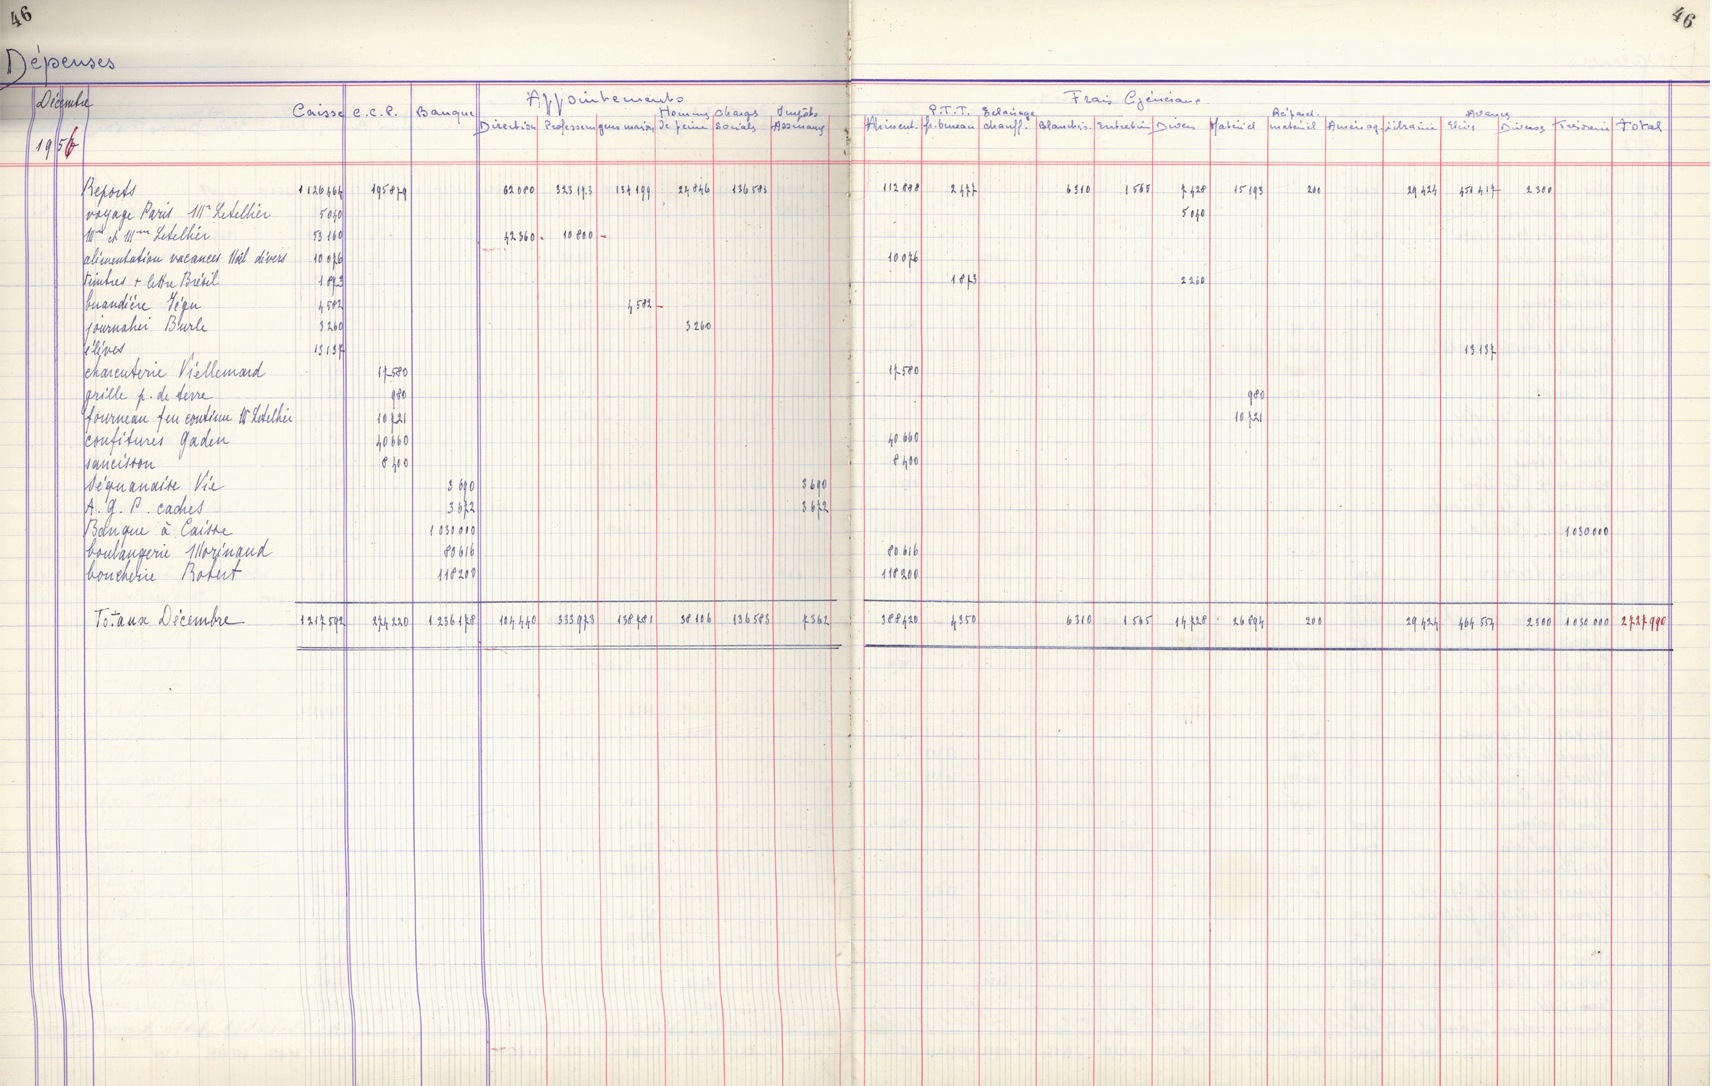 46 46
Dépenses
Décembre Appointements Frais Généraux
Caisse C.C.P. Banque Hommes Charges Impôts P.T.T. Eclairage Réparat. Avances
Direction Professeurs gens maison de peine Sociales Assurances Aliment. fr. bureau chauff. Blanchis. Entretien Divers Matériel matériel Aménag. Librairie Elèves Diverses Trésorerie Total
1956
Reports 1 126 464 195 879 62 080 323 173 134 199 24 846 136 583 112 888 2 477 6310 1 565 7 428 15 193 200 29 424 451 417 2 300
voyage Paris Mr Letellier 5 040 5 040
Mr et Mme Letellier 53 160 42 360 - 10 800 -
alimentation vacances Noël divers 10 076 10 076
timbres + lettre Brésil 1 873 2 260
buandière Jégu 4 582 4 582 -
journalier Burle 3 260 3 260
élèves 13 137 13 137
charcuterie Viellemard 17 580 17 580
grille p. de terre 980 980
fourneau feu continu Mr Letellier 10 721 10 721
confitures Gaden 40 660 40 660
saucisson 8 400 8 400
Séquanaise Vie 3 690 3 690
A. G. P. cadres 3 672 3 672
Banque à Caisse 1 030 000 1 030 000
boulangerie Morinaud 80 616 80 616
boucherie Robert 118 200 118 200
Totaux Décembre 1 217 592 274 220 1 236 178 104 440 333 973 138 781 136 583 7 362 388 420 4350 6310 1 565 14 728 26 894 200 29 424 464 554 2300 1 030 000 2 727 990